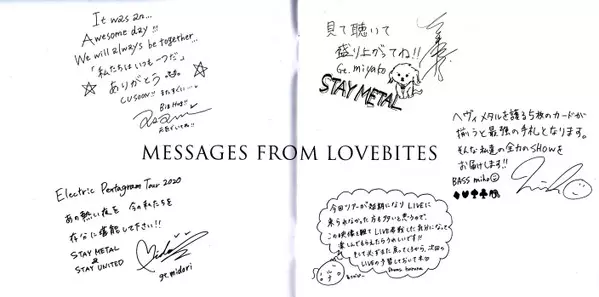 It was an...
Awesome day!!
We will always be together...
「私たちはいつも一つだ」
ありがとう
CU SOON!! またすぐに…
Big Hug!!
MESSAGES FROM LOVEBITES
Electric Pentagram Tour 2020
あの熱い夜を 今の私たちを
存分に堪能して下さい!!
STAY METAL
&
STAY UNITED
gt. midori
見て聴いて
盛り上がってね!!
Gt. miyako
STAY METAL
ヘヴィメタルを護る5枚のカードが
揃うと最強の手札となります。
そんな私達の全力のSHOWを
お届けします!!
BASS miho
今回ツアーが延期になりLIVEに
来られなかった方も多いと思うので、
この映像を観てLIVE参戦した気分になって
楽しんでもらえたらうれしいです!!
LIVEの予習しておいて
Drums haruna